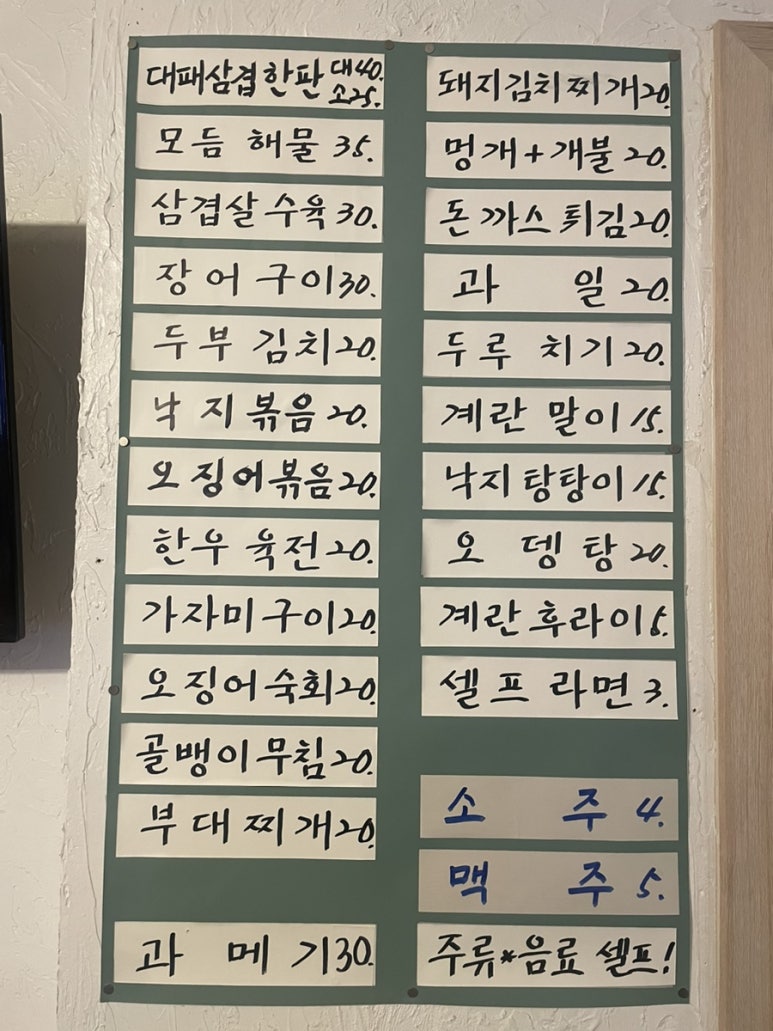 대패삼겹한판 대40.
소25.
모듬 해물 35.
삼겹살수육30.
장어구이30.
두부김치20.
낙지볶음20.
오징어볶음20.
한우육전20.
가자미구이20.
오징어숙회20.
골뱅이무침20.
부대찌개20.
과메기30.
돼지김치찌개20.
멍개+개불20.
돈까스튀김20.
과일20.
두루치기20.
계란말이15.
낙지탕탕이15.
오뎅탕20.
계란후라이5.
셀프라면3.
소주4.
맥주5.
주류*음료 셀프!